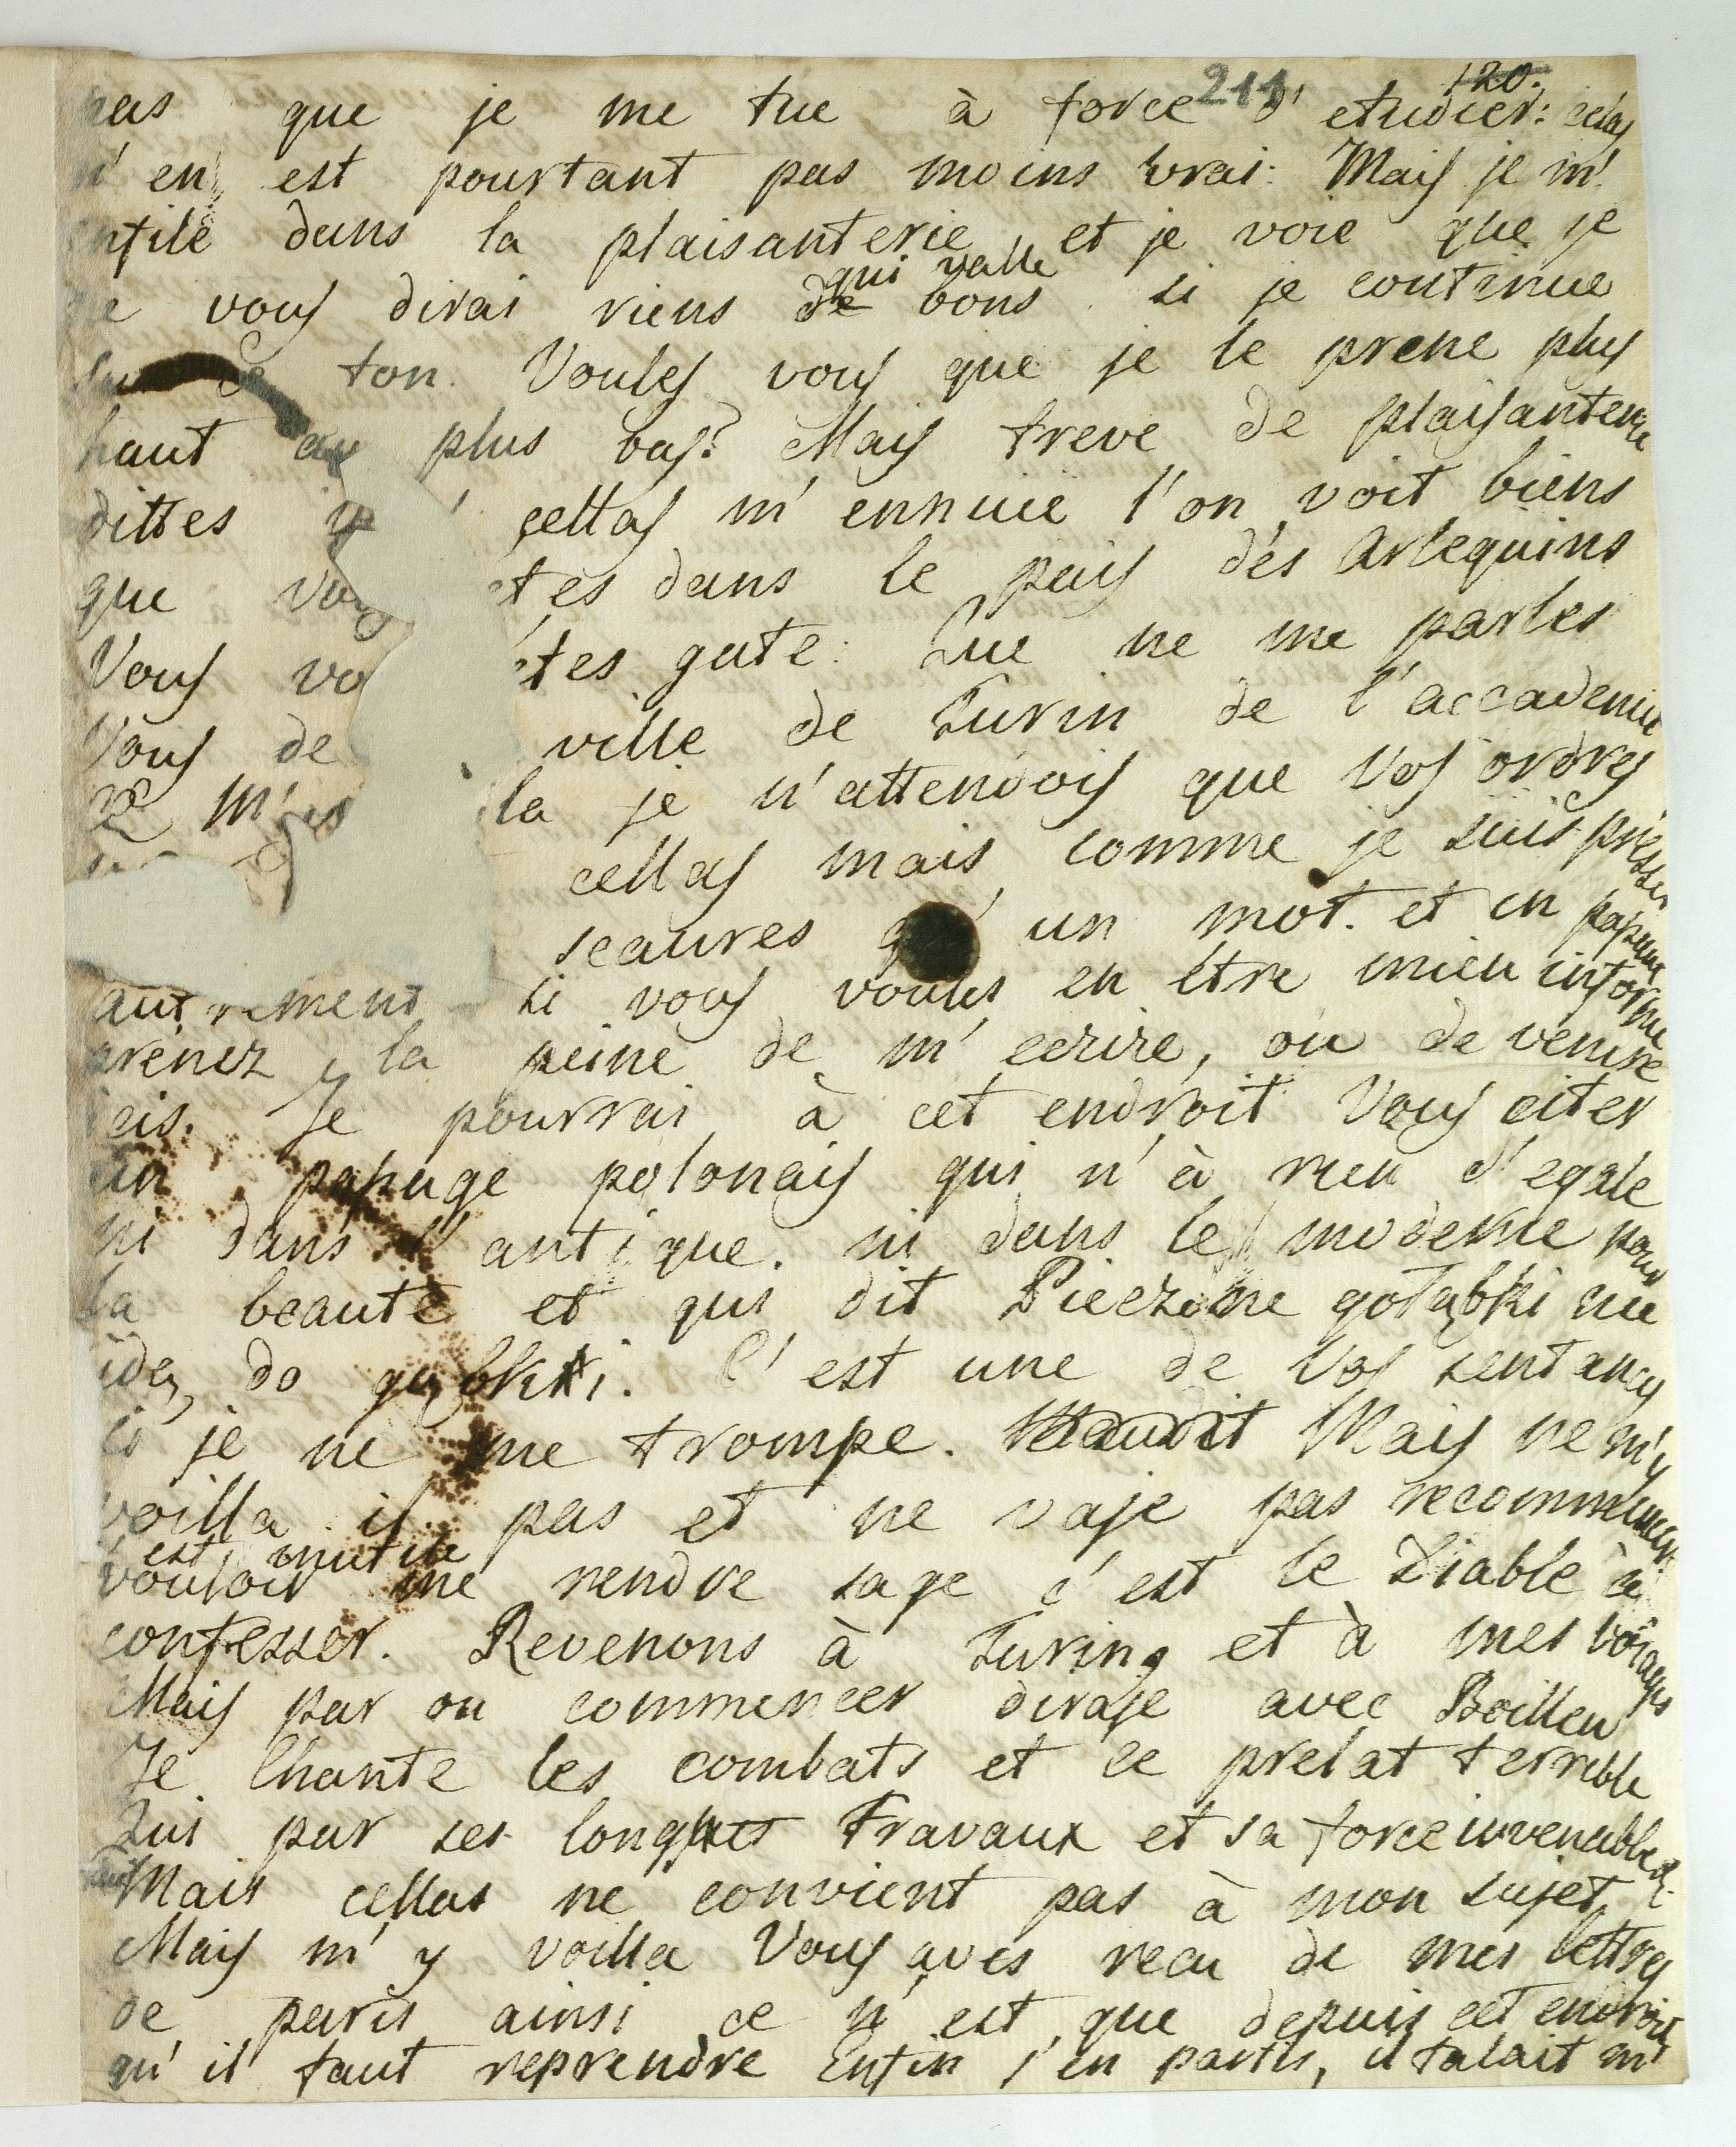 211 120.
pas que je me tue à force d' etudier: cela
n' en est pourtant pas moins vrai: Mais je m'
enfile dans la plaisanterie, et je voie que je
qui valle
ne vous dirai riens de bons si je continue
sur ce ton. Voules vous que je le prene plus
haut ou plus bas? Mais treve de plaisanterie
dittes cellas m' ennuie l'on voit biens
que vous etes dans le pais des Arlequins
Vous vo êtes gate: Que ne me parles
Vous de ville de Turin de l'accademie
la je n'attendois que vos ordres
cellas mais comme je suis presser
scaures qu' un mot. et en papiere
autrement si vous voules en être mieu informe
prenez la peine de m' ecrire, ou de venire
icis. Je pourrai à cet endroit Vous citer
un papuge polonais qui n'à rien d'egale
ni dans l'antique. ni dans le moderne pour
la beaute et qui dit Pieczone gołąbki nie
idą do gębki. C'est une de vos sentences
si je ne me trompe. Mais ne m'y
voilla il pas et ne vaje pas recommencer
est inutile
vouloir me rendre sage c'est le Diable à
confesser. Revenons à Turing et à mes voiages
Mais par ou commencer diraje avec Boilleu
Je Chante les combats et ce prelat terrible
Qui par ses longues Travaux et sa force invencible
Mais cellas ne convient pas à mon sujet
Mais m' y voilla Vous aves recu de mes lettres
de paris ainsi ce n'est que depuis cet endroit
qu' il faut reprendre Enfin j'en partis, il falait m'